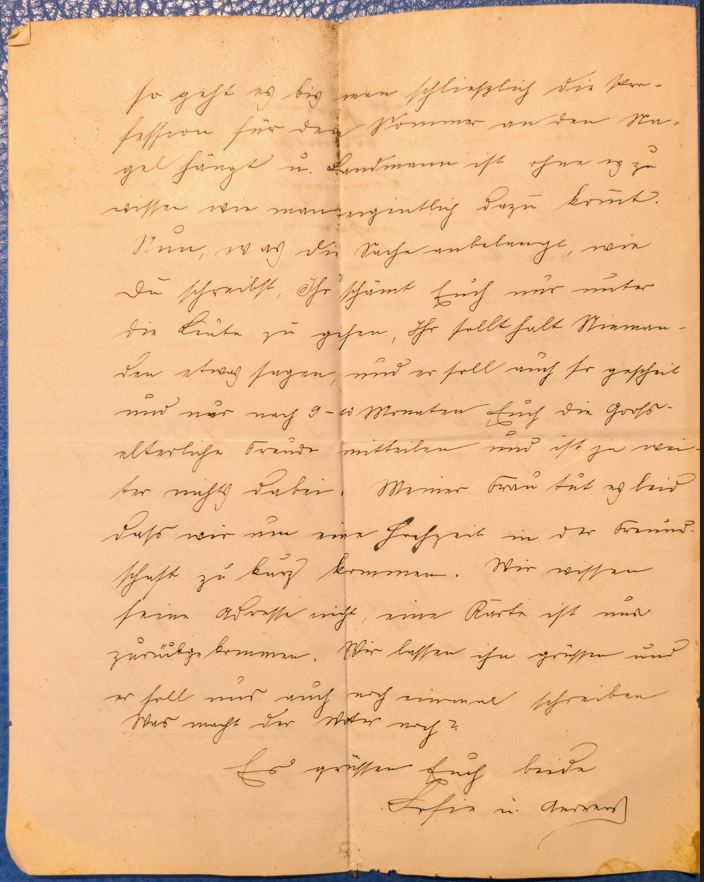 so geht es bis man schließlich die Pro-
fession für den Sommer an den Na-
gel hängt u. Landmann ist ohne es zu
wissen wie man eigentlich dazu kom̄t.
Nun, was die Sache anbelangt, wie
Du schreibst, Ihr schämt Euch nur unter
die Leute zu gehen, Ihr sollt halt Nieman-
den etwas sagen, und er soll auch so gescheit
und nur nach 9-10 Monaten Euch die Gross-
elterliche Freude mitteilen und ist ja wei-
ter nichts dabei. Meiner Frau tut es leid
dass wir um eine Hochzeit in der Freund-
schaft zu kurz kommen. Wir wissen
seine Adresse nicht, eine Karte ist uns
zurückgekommen. Wir lassen ihn grüssen und
er soll uns auch noch einmal schreiben
Was macht der Vater noch?
Es grüssen Euch beide
u.